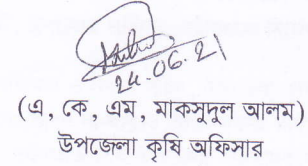 24.06.21
(এ, কে, এম, মাকসুদুল আলম)
উপজেলা কৃষি অফিসার